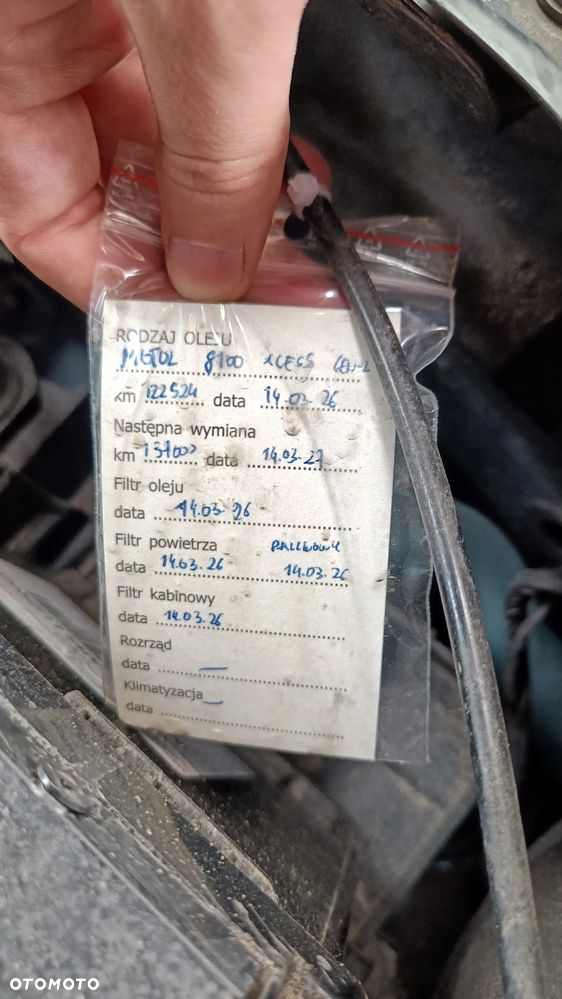 RODZAJ OLEJU
MOTUL 8100 XCESS GEN-2
km 122524 data 14.03.26
Następna wymiana
km 137000 data 14.03.27
Filtr oleju
data 14.03.26
Filtr powietrza PALIWOWY
data 14.03.26 14.03.26
Filtr kabinowy
data 14.03.26
Rozrząd
data —
Klimatyzacja —
data
OTOMOTO